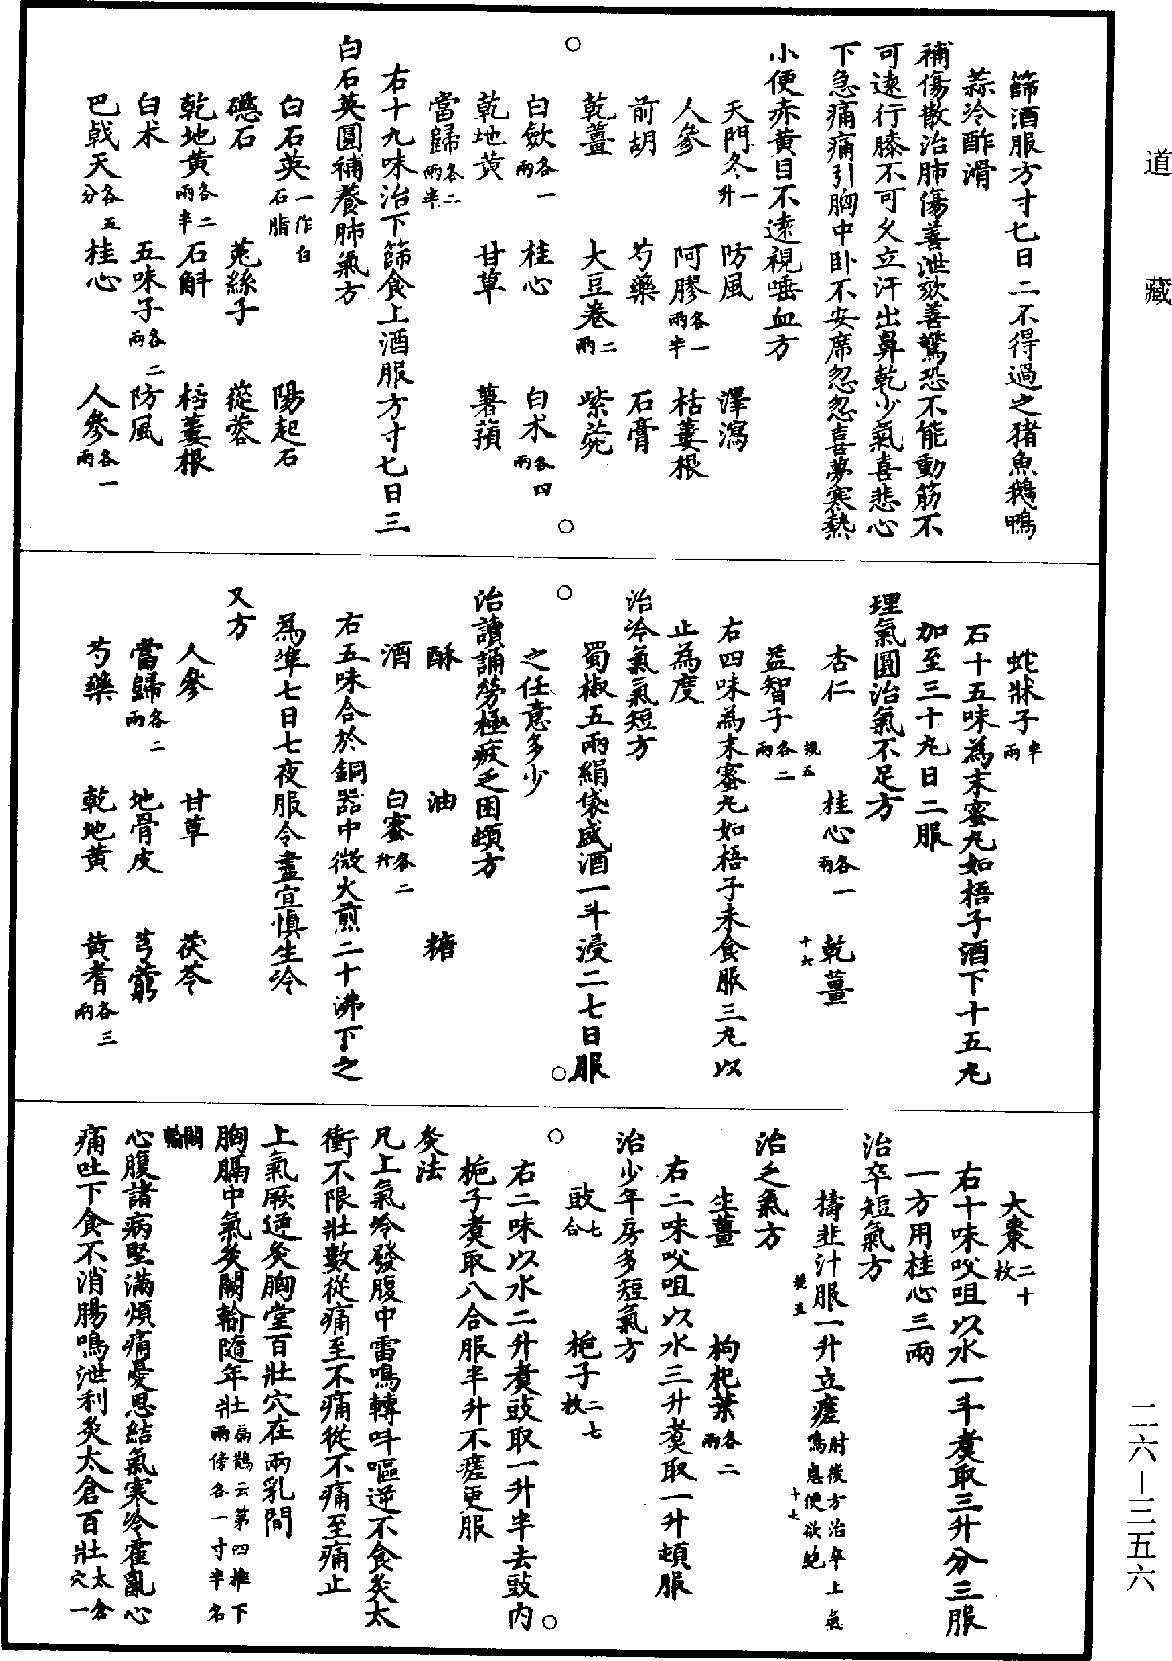 道藏
篩酒服方寸匕日二不得過之猪魚鵝鴨
蒜冷酢滑
補傷散治肺傷善泄欬善驚恐不能動筋不
可遠行膝不可久立汗出鼻乾少氣喜悲心
下急痛痛引胸中卧不安席忽忽喜夢寒熱
小便赤黃目不遠視唾血方
天門冬一升 防風 澤瀉
人參 阿膠各一兩半 栝蔞根
前胡 芍藥 石膏
乾薑 大豆卷二兩 紫菀
白歛各一兩 桂心 白术各四兩
乾地黃 甘草 薯蕷
當歸各二兩半
右十九味治下篩食上酒服方寸匕日三
白石英圓補養肺氣方
白石英一作白石脂 陽起石
礠石 菟絲子 蓯蓉
乾地黃各二兩半 石斛 栝蔞根
白术 五味子各二兩 防風
巴戟天各五分 桂心 人參各一兩
蛇牀子半兩
石十五味為末蜜丸如梧子酒下十五丸
加至三十丸日二服
理氣圓治氣不足方
杏仁 桂心各一兩 乾薑
益智子各二兩
競五 十六
右四味為末蜜丸如梧子未食服三丸以
止為度
治冷氣氣短方
蜀椒五兩絹袋盛酒一斗浸二七日服
之任意多少
治讀誦勞極疲乏困頓方
酥 油 糖
酒 白蜜各二升
右五味合於銅器中微火煎二十沸下之
為準七日七夜服令盡宜慎生冷
又方
人參 甘草 茯苓
當歸各二兩 地骨皮 芎藭
芍藥 乾地黃 黃耆各三兩
大棗二十枚
右十味㕮咀以水一斗煑取三升分三服
一方用桂心三兩
治卒短氣方
擣韭汁服一升立瘥肘後方治卒上氣鳴息便欲絶
競五 十七
治乏氣方
生薑 枸杞葉各二兩
右二味㕮咀以水三升煑取一升頓服
治少年房多短氣方
豉七合 梔子二七枚
右二味以水二升煑豉取一升半去豉内
梔子煑取八合服半升不瘥更服
灸法
凡上氣冷發腹中雷鳴轉叫嘔逆不食灸太
衝不限壯數從痛至不痛從不痛至痛止
上氣厥逆灸胸堂百壯穴在兩乳間
胸膈中氣灸闕輸隨年壯扁鵲云第四椎下兩傍各一寸半名
闕輸
心腹諸病堅滿煩痛憂思結氣寒冷霍亂心
痛吐下食不消腸鳴泄利灸太倉百壯太倉穴一
二六—三五六